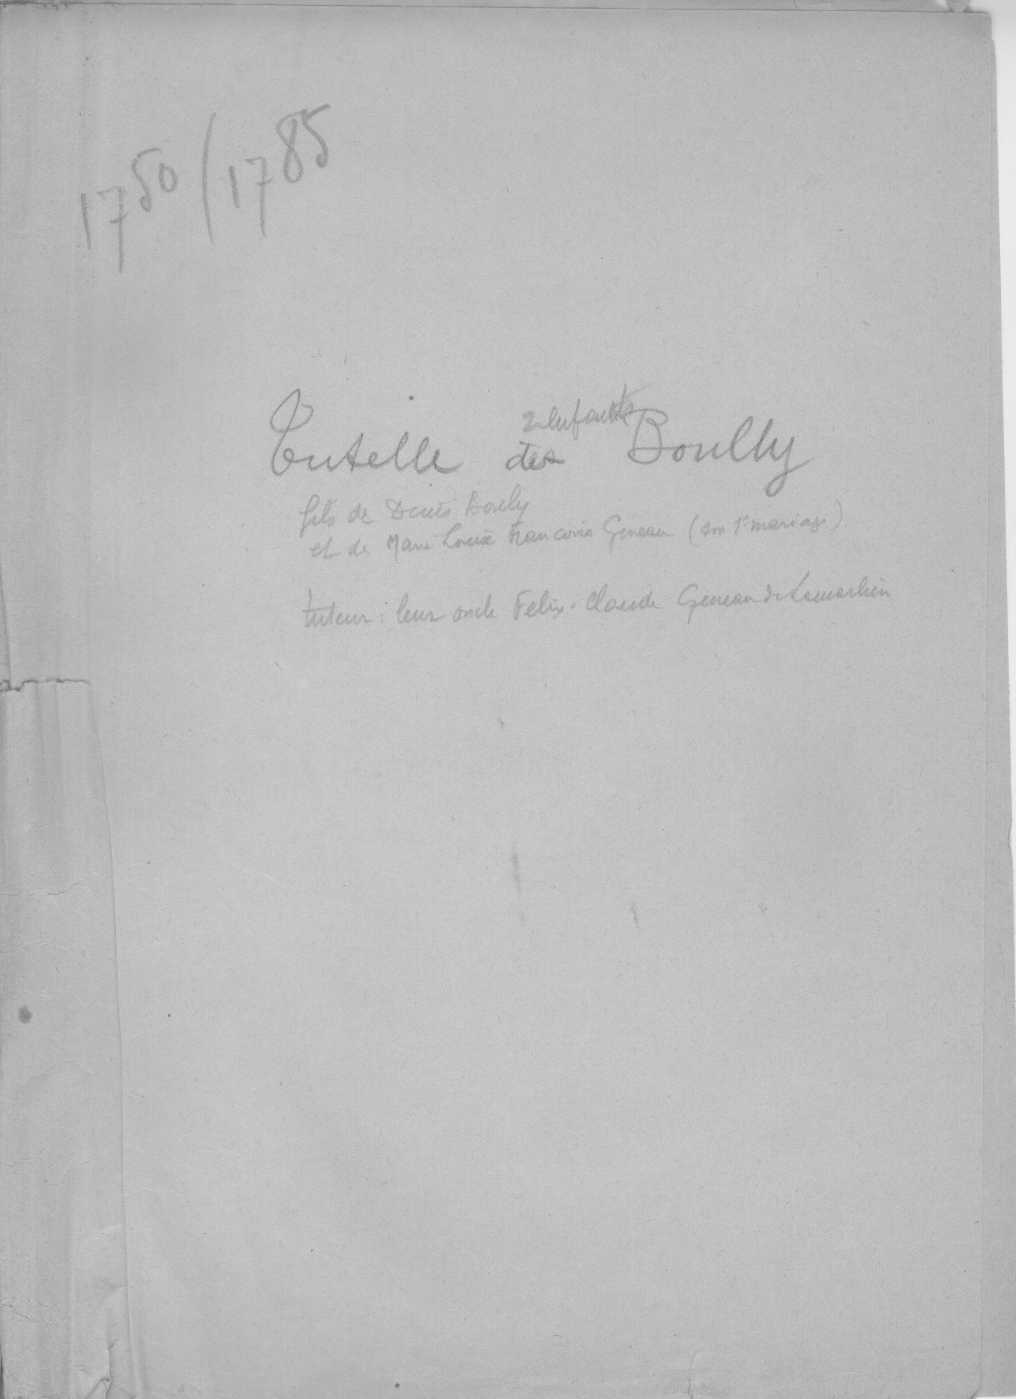 1750/1785
2 enfants
Tutelle des Boully
fils de Denis Boully
et de Marie Louise Françoise Geneau (son 1er mariage)
tuteur : leur oncle Felix-Claude Geneau de